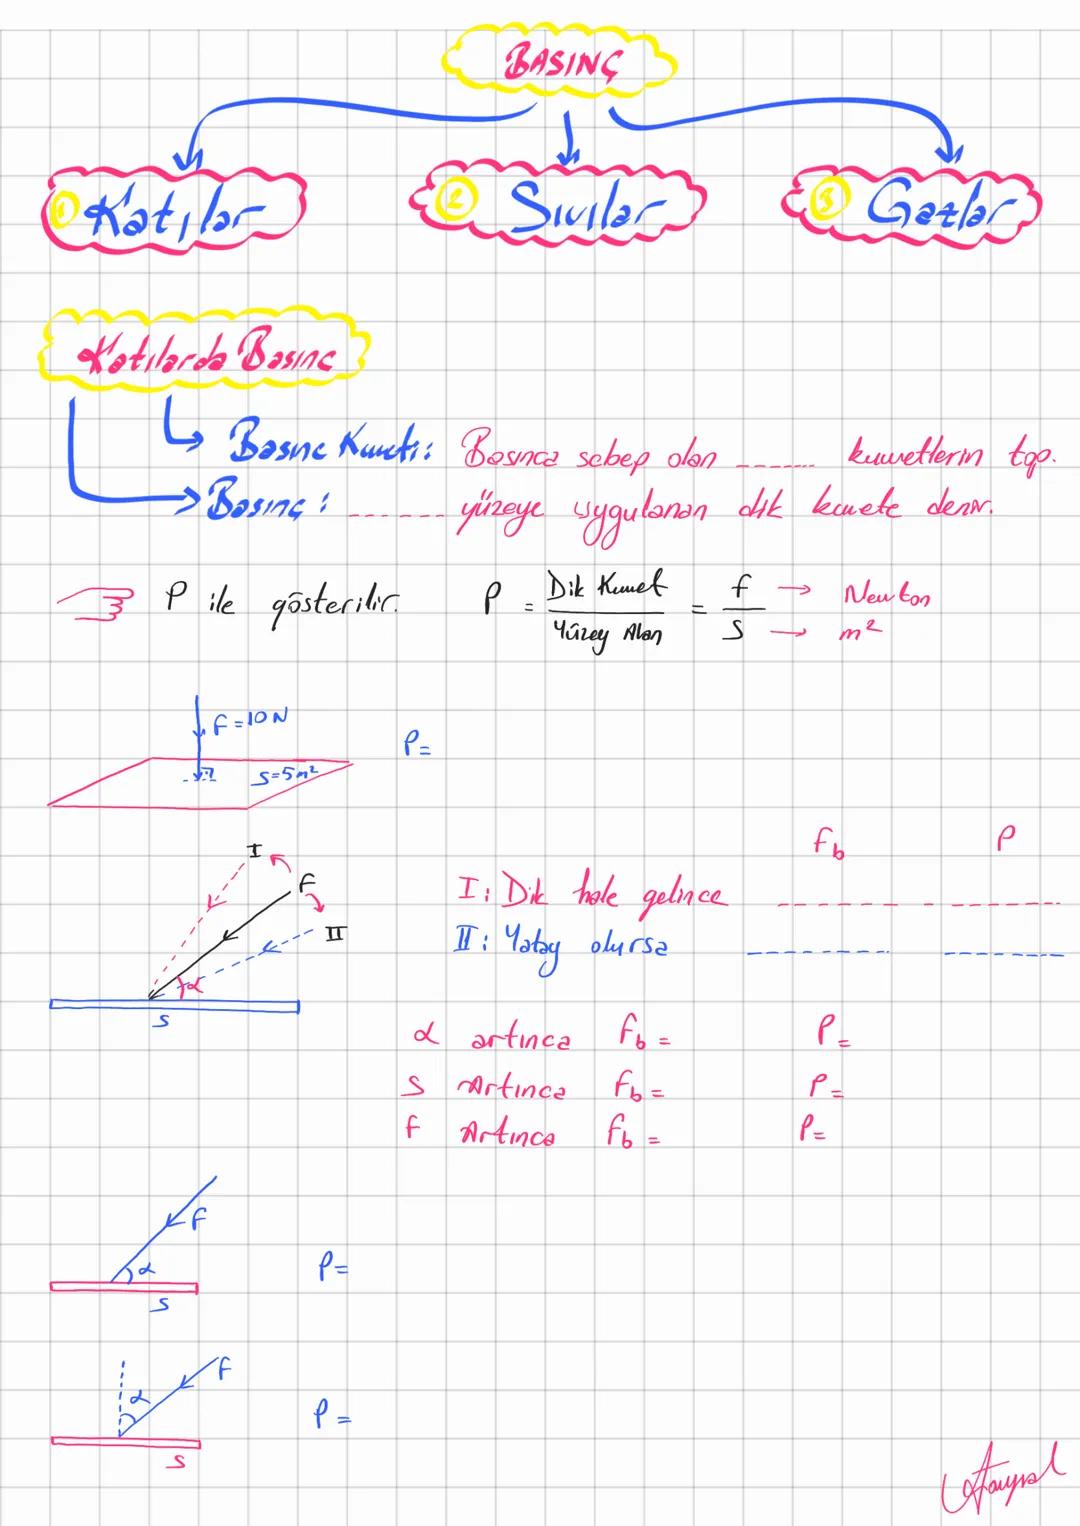 BASINÇ
1 Katılar
2 Sıvılar
3 Gazlar
Katılarda Basınc
Basınc Kuvveti: Basınca sebep olan ------- kuvvetlerin top.
Basınç : ------- yüzeye uygulanan dik kuvvete denir.
P ile gösterilir. P = Dik Kuvvet / Yüzey Alan = f / S → Newton → m²
F = 10 N
S = 5 m²
P =
I
F
II
α
S
Fb P
I : Dik hale gelince -------- - --------
II : Yatay olursa -------- --------
α artınca Fb = P =
S Artınca Fb = P =
f Artınca Fb = P =
F
α
S
P =
F
α
S
P =